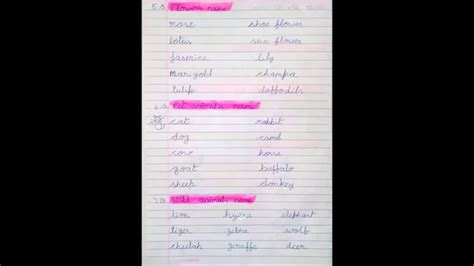 5.Q. Flowers name
rose shoe flower
lotus sun flower
Jasmine lily
Marigold champa
tulip daffodils
6.Q. Pet animals name
cat rabbit
dog camel
cow horse
goat buffalo
sheep donkey
7.Q. Wild animals name
lion hyena elephant
tiger zebra wolf
cheetah giraffe deer